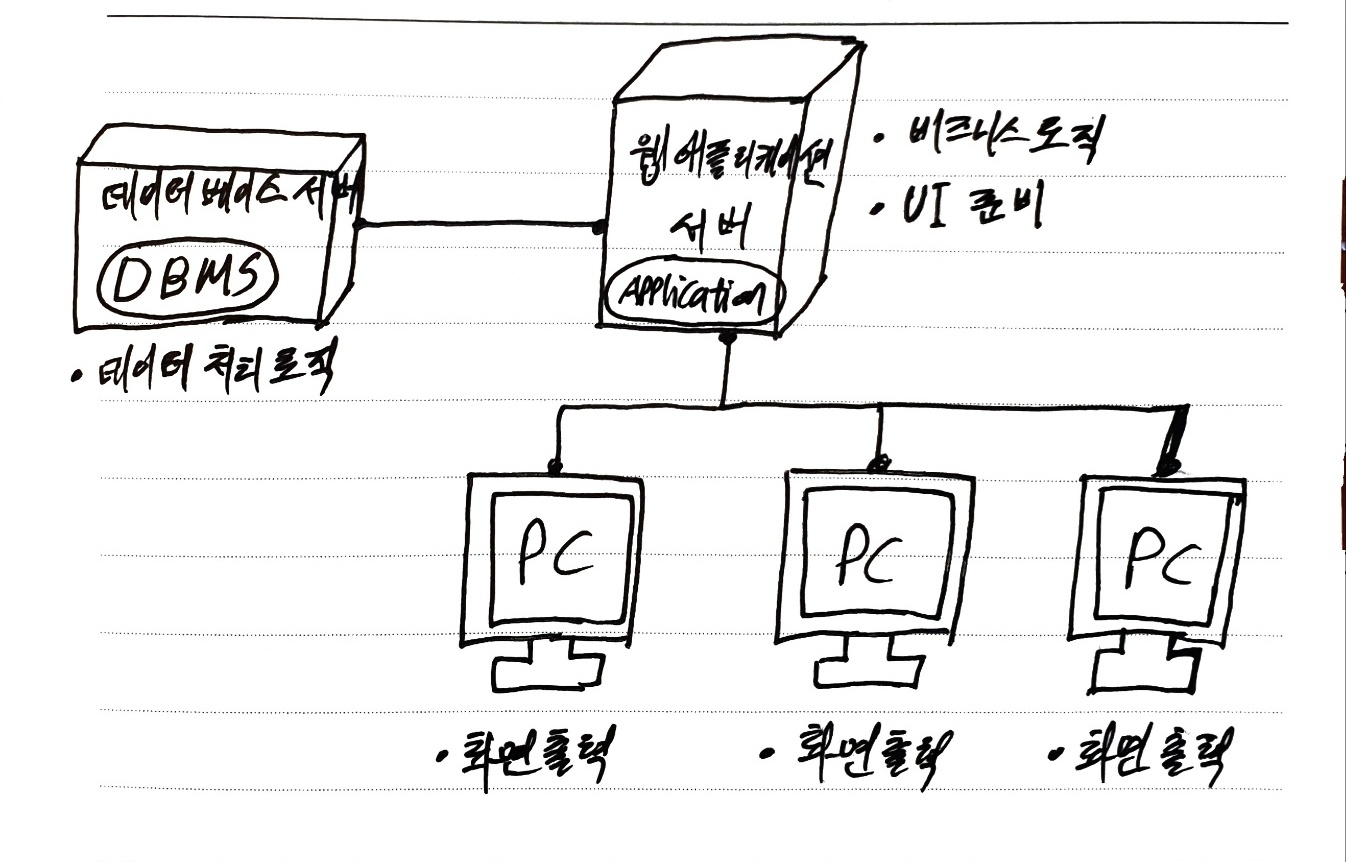 데이터베이스 서버
DBMS
• 데이터 처리 로직
웹 애플리케이션
서버
Application
• 비즈니스로직
• UI 준비
PC
PC
PC
• 화면출력
• 화면출력
• 화면출력